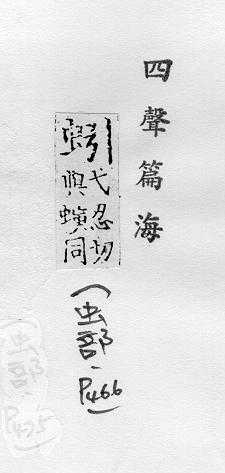 四聲篇海
蚓
弋忍切
與螾同
(虫部.
P466)
(虫部.
P475)